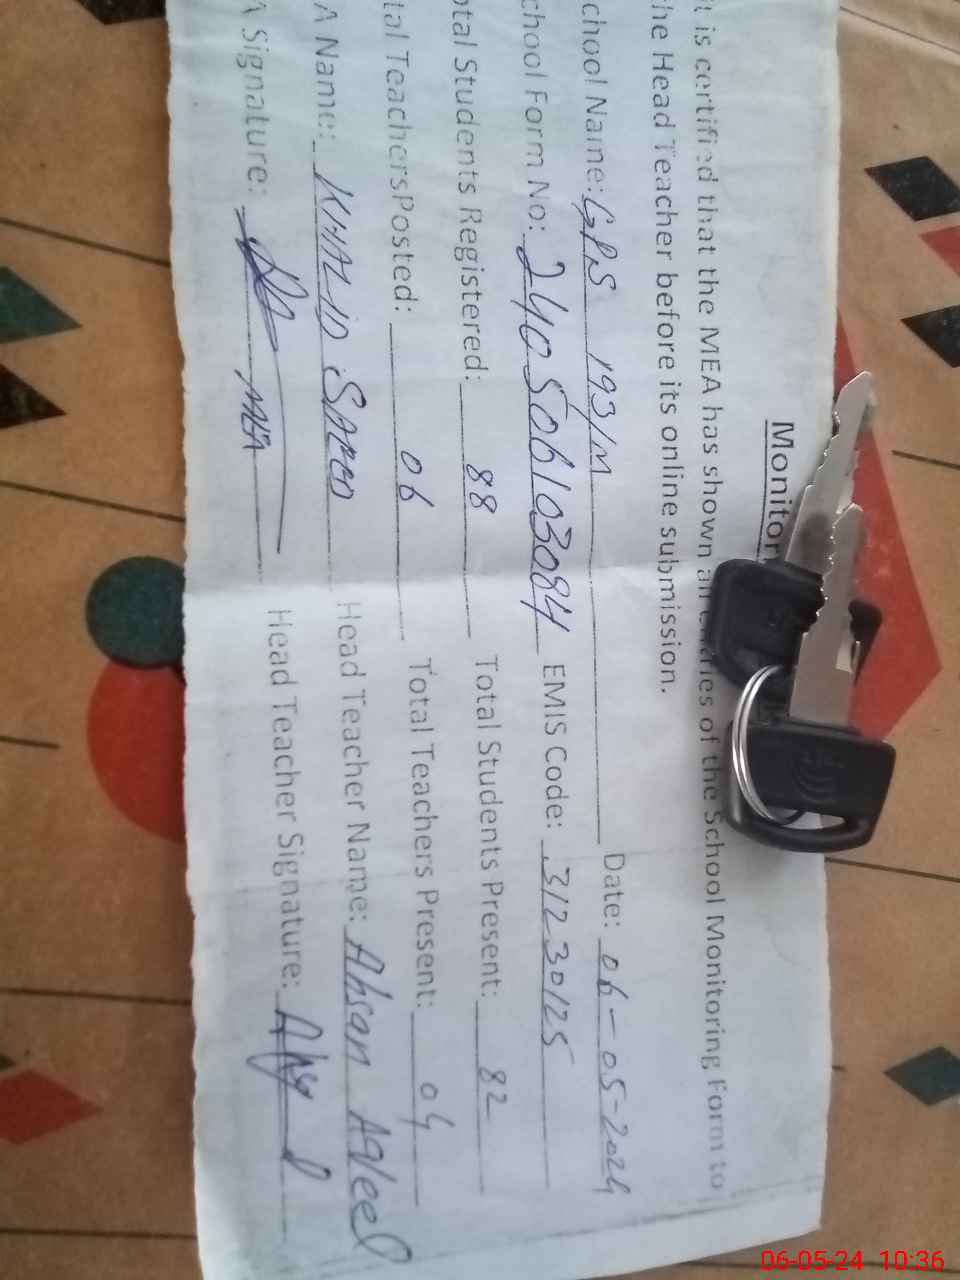 Monitor
it is certified that the MEA has shown all entries of the School Monitoring Form to
he Head Teacher before its online submission.
chool Name: GPS 193/M Date: 06-05-2024
chool Form No: 240506103084 EMIS Code: 31230125
otal Students Registered: 88 Total Students Present: 82
tal TeachersPosted: 06 Total Teachers Present: 04
A Name: KHALID SAEED Head Teacher Name: Ahsan Aqleel
A Signature: MEA Head Teacher Signature:
06-05-24 10:36